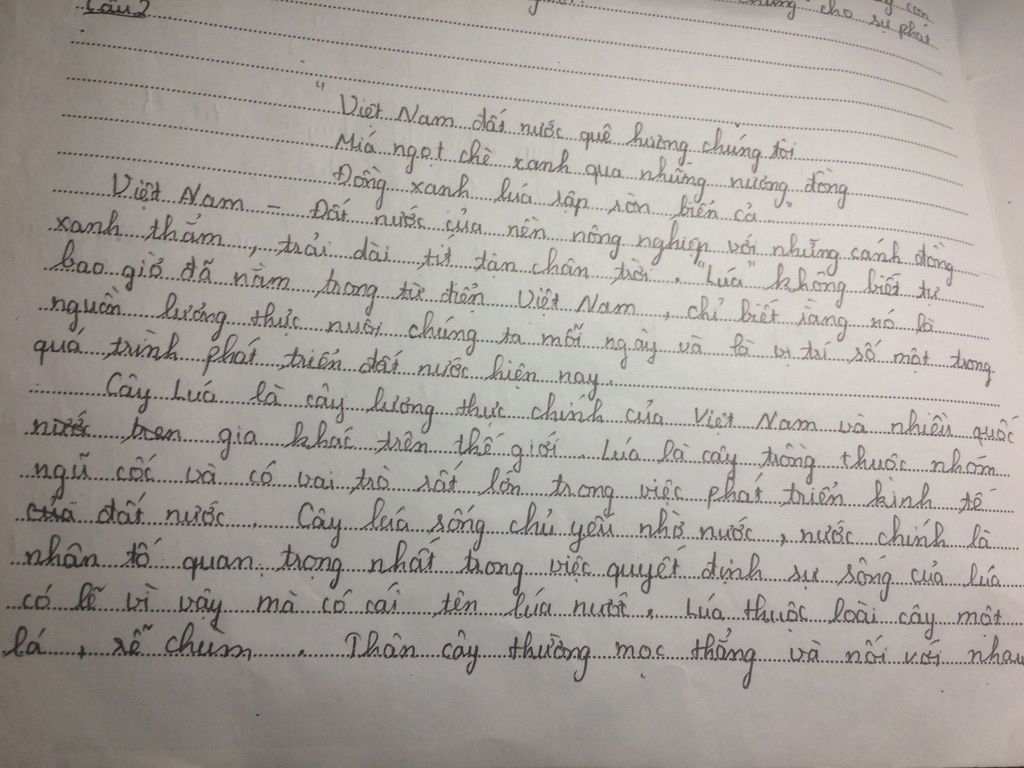 cho sự phát
Câu 2
" Việt Nam đất nước quê hương chúng tôi
Miá ngọt chè xanh qua những nương đồng
Đồng xanh lúa rập rờn biển cả "
Việt Nam - Đất nước của nền nông nghiệp với những cánh đồng
xanh thắm, trải dài tít tận chân trời. "Lúa" không biết tự
bao giờ đã nằm trong từ điển Việt Nam, chỉ biết rằng nó là
nguồn lương thực nuôi chúng ta mỗi ngày và là vị trí số một trong
quá trình phát triển đất nước hiện nay.
Cây Lúa là cây lương thực chính của Việt Nam và nhiều quốc
gia khác trên thế giới. Lúa là cây trồng thuộc nhóm
ngũ cốc và có vai trò rất lớn trong việc phát triển kinh tế
đất nước. Cây lúa sống chủ yếu nhờ nước, nước chính là
nhân tố quan trọng nhất trong việc quyết định sự sống của lúa
có lẽ vì vậy mà có cái tên lúa nước. Lúa thuộc loài cây một
lá, rễ chùm. Thân cây thường mọc thẳng và nối với nhau